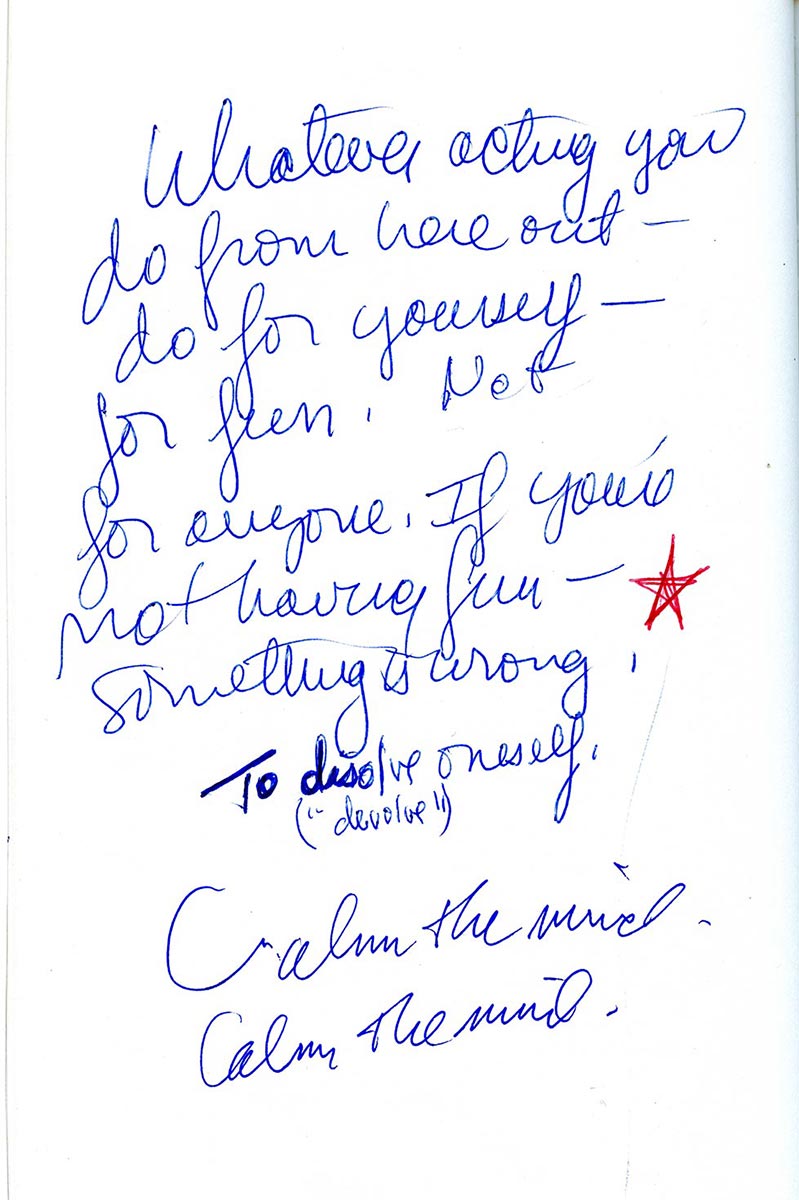 Whatever acting you
do from here out —
do for yourself —
for fun. Not
for anyone. If you're
not having fun —
something is wrong.
To disolve oneself.
("devolve")
Calm the mind.
Calm the mind.